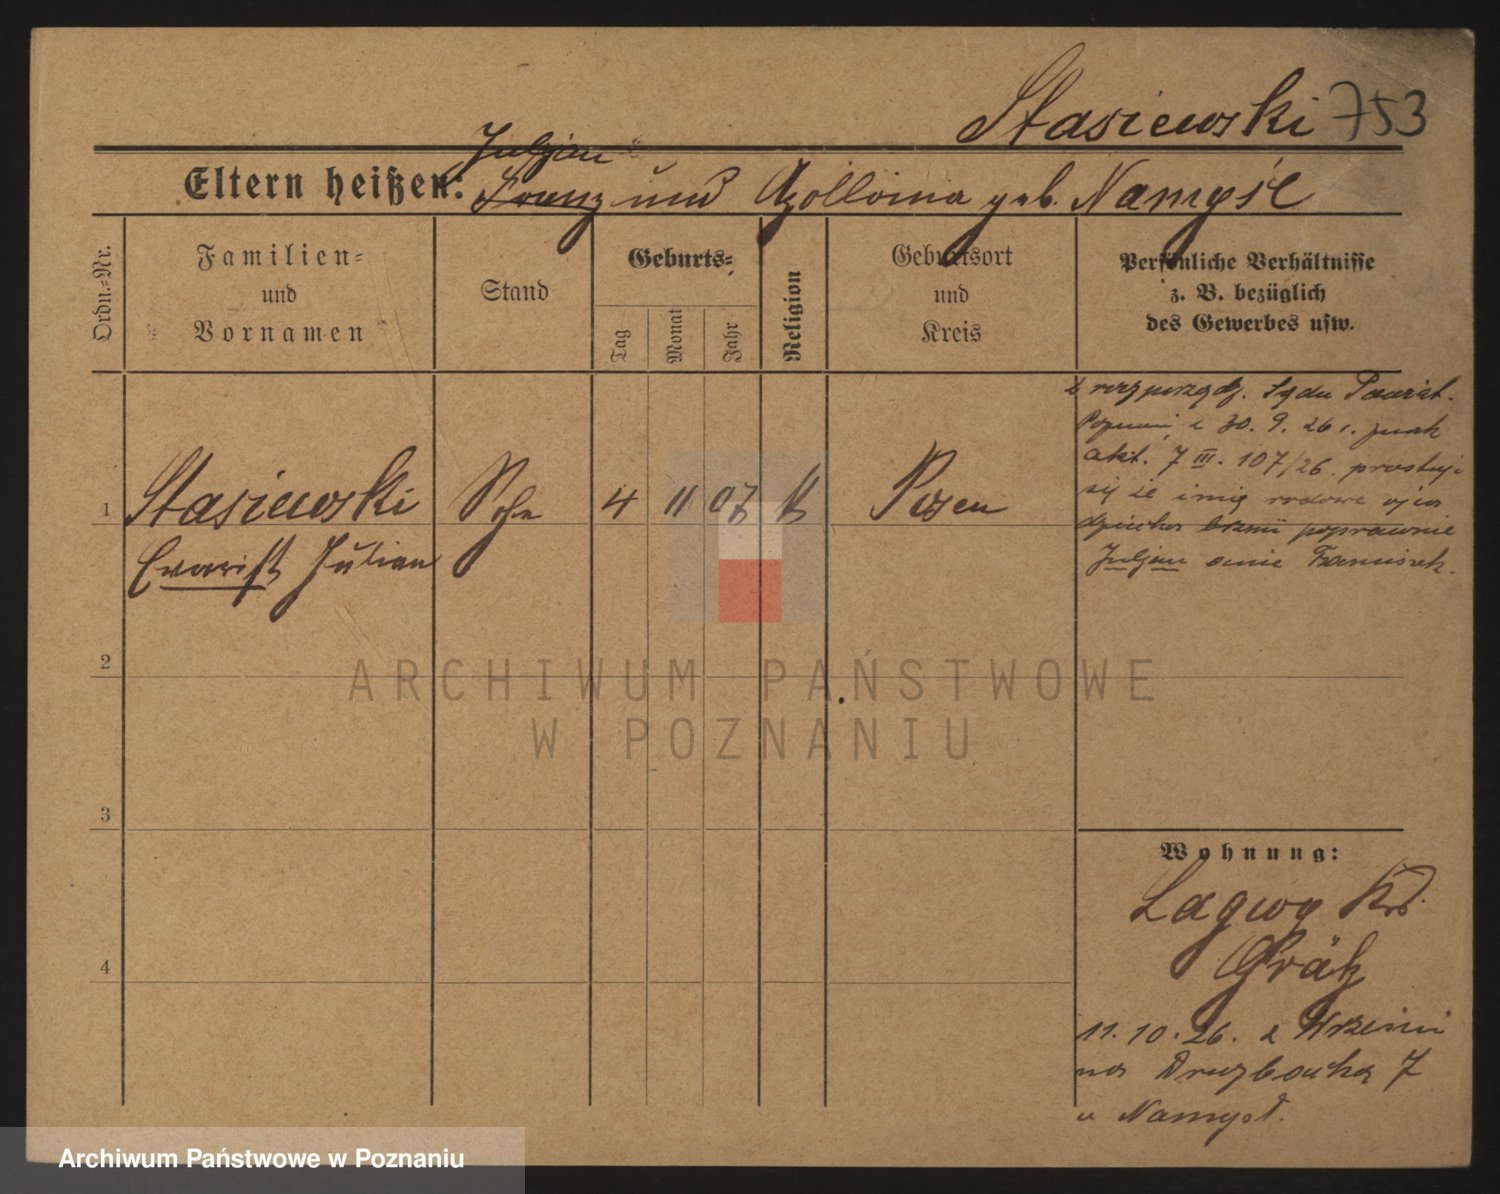 Stasiewski 753
Juljan
Eltern heißen: Franz und Apollonia geb. Namysł
Ordn.-Nr.
Familien-
und
Vornamen
Stand
Geburts-
Tag
Monat
Jahr
Religion
Geburtsort
und
Kreis
Persönliche Verhältnisse
z. B. bezüglich
des Gewerbes usw.
z rozporządz. Sądu Powiat.
Poznań z 30. 9. 26 r. znak
akt. 7 III. 107/26. prostuje
się że imię ojca
dziecka brzmi poprawnie
Juljan a nie Franciszek.
1 Stasiewski Sohn 4 11 07 k Posen
Evarist Julian
2
3
4
Wohnung:
Lagwy
Grätz
11. 10. 26. z Wrześni
na Druzbacka 7
u Namysł.
ARCHIWUM PAŃSTWOWE
W POZNANIU
Archiwum Państwowe w Poznaniu